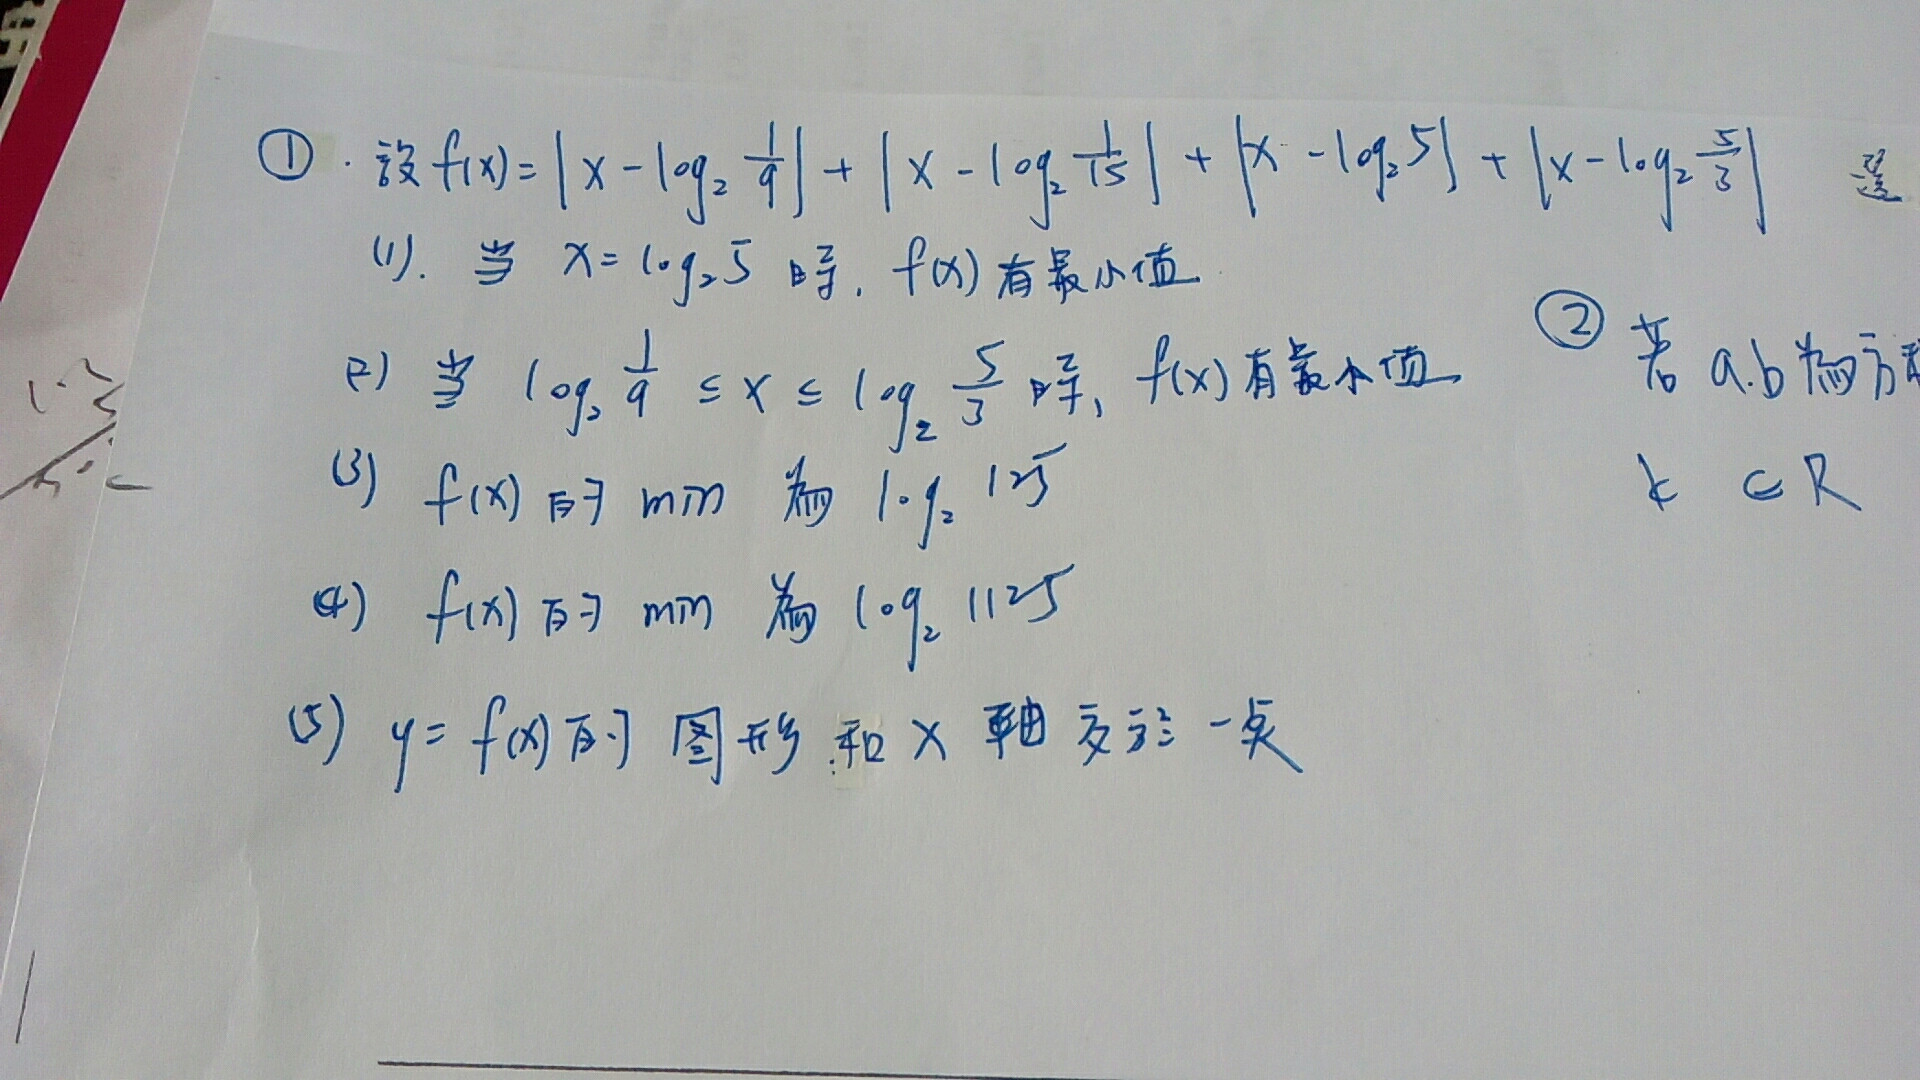 ① . 設 f(x) = |x - log₂ 1/9| + |x - log₂ 1/15| + |x - log₂ 5| + |x - log₂ 5/3| 選
(1). 当 x = log₂ 5 時, f(x) 有最小值
(2) 当 log₂ 1/9 ≤ x ≤ log₂ 5/3 時, f(x) 有最小值
(3) f(x) 的 min 為 log₂ 125
(4) f(x) 的 min 為 log₂ 1125
(5) y = f(x) 的 图形 和 x 軸 交於 一点
② 若 a.b 為方
k ∈ R